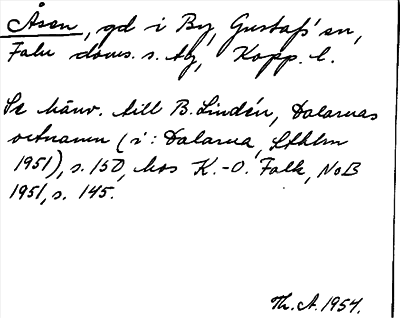 Åsen, gd i By, Gustafs sn,
Falu doms. s. tg, Kopp. l.
Se hänv. till B. Lindén, Dalarnas
ortnamn (i: Dalarna, Sthlm
1951), s. 150, hos K.-O. Falk, NoB
1951, s. 145.
Th. A. 1954.